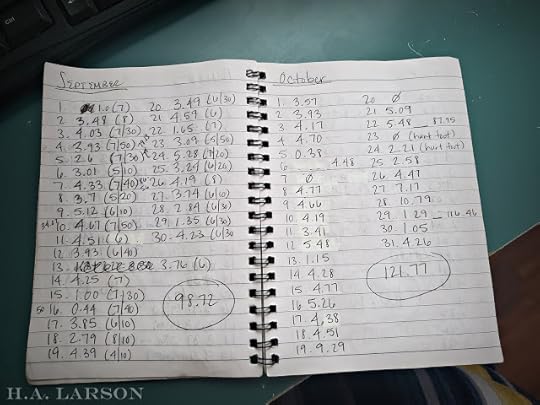 SEPTEMBER
1. 1.0 (7)
2. 3.48 (8)
3. 4.03 (7/30)
4. 3.93 (7/50)
5. 2.6 (7/30)
6. 3.01 (5/10)
7. 4.33 (7/40)
8. 3.7 (5/20)
9. 5.12 (6/10)
10. 4.67 (7/50)
11. 4.51 (6)
12. 3.93 (6/40)
13. 3.76 (6)
14. 4.25 (7)
15. 1.00 (7/30)
50 16. 0.44 (7/40)
17. 3.85 (6/10)
18. 2.79 (8/10)
19. 4.39 (4/10)
20. 3.49 (6/30)
21. 4.59 (6)
22. 1.65 (7)
23. 3.09 (5/50)
24. 5.28 (7/20)
25. 3.24 (6/20)
26. 4.19 (8)
27. 3.74 (6/10)
28. 2.84 (6/30)
29. 1.35 (6/50)
30. 4.23 (6/30
98.72
October
1. 3.57
2. 3.93
3. 4.17
4. 4.70
5. 0.38
6. 4.48
7. Ø
8. 4.77
9. 4.66
10. 4.19
11. 3.41
12. 5.48
13. 1.15
14. 4.28
15. 4.77
16. 5.26
17. 4.38
18. 4.51
19. 9.29
20 Ø
21 5.09
22 5.48 87.95
23 Ø (hurt foot)
24 2.21 (hurt foot)
25 2.58
26 4.47
27. 7.17
28. 10.79
29. 1.29 116.46
30. 1.05
31. 4.26
121.77
H.A. LARSON